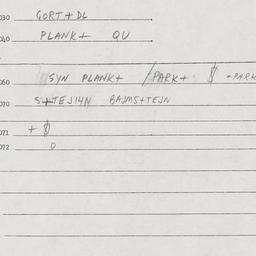 030 GORT+DL
040 PLANK+ QU
060 SYN PLANK+ /PARK+ $ -PARK
070 S+TEJ14N BAJMS+TEJN
071 + $
072 0